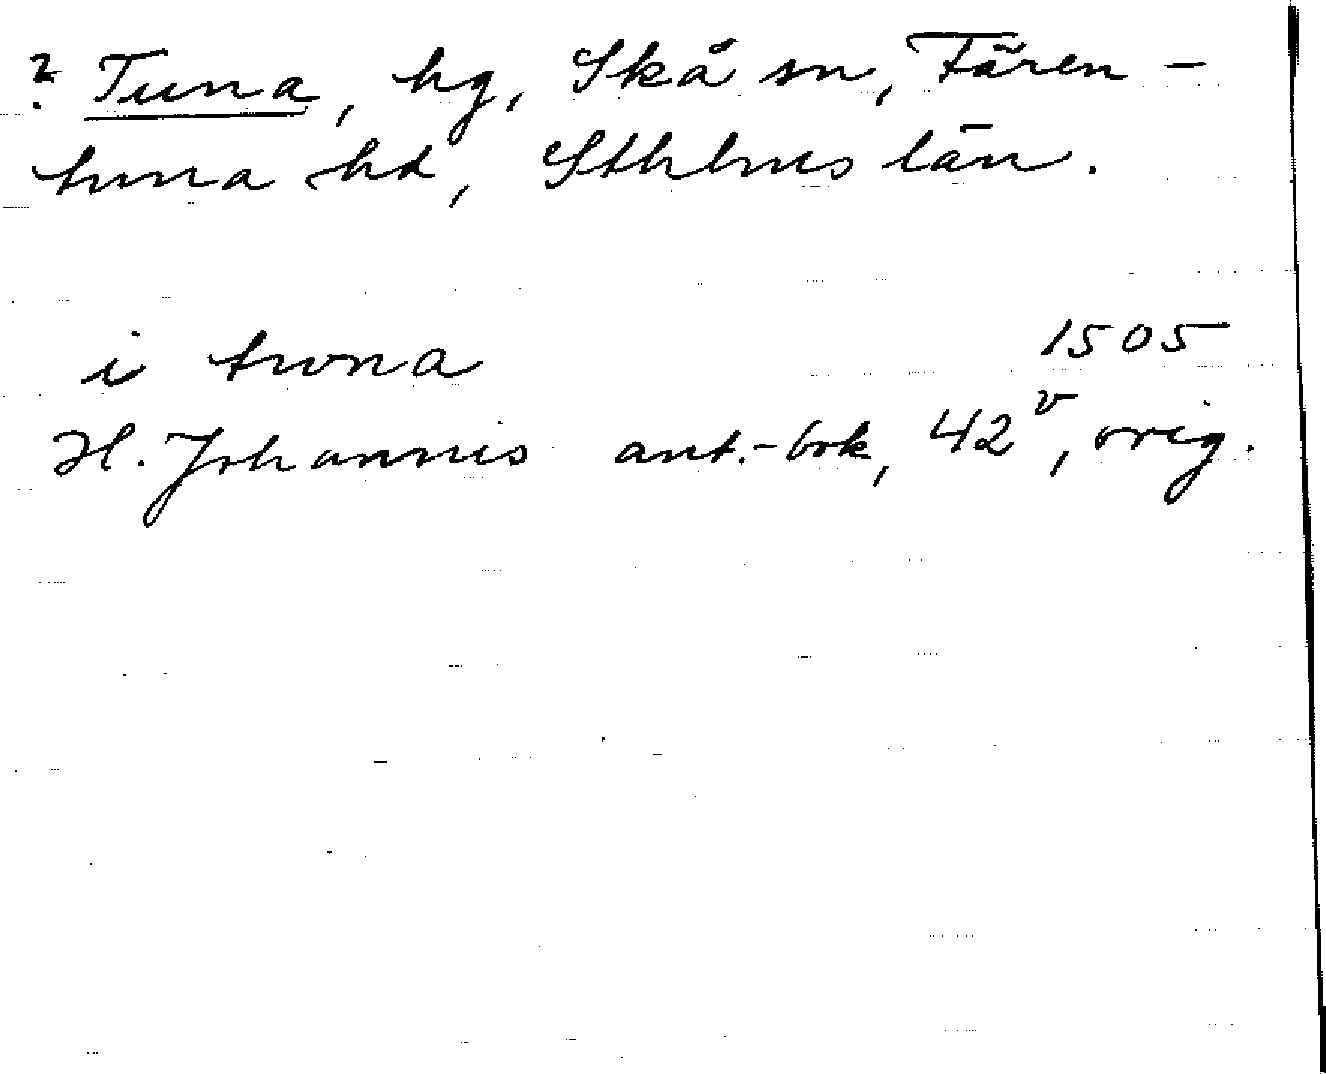 ? Tuna, hg, Skå sn, Fären-
tuna hd, Sthlms län.
i twna 1505
H. Johannis ant.-bok, 42v, orig.